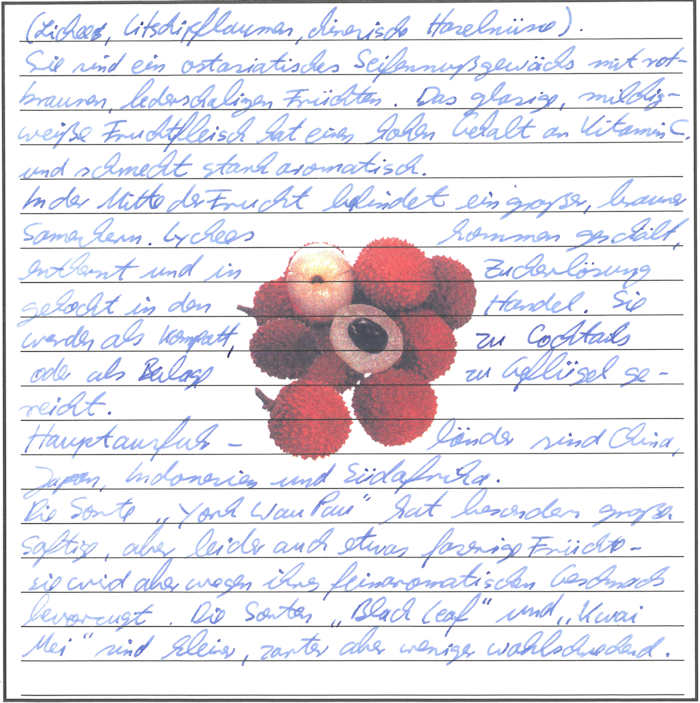 (Lichees, Litschipflaumen, chinesische Haselnüsse).
Sie sind ein ostasiatisches Seifennußgewächs mit rot-
braunen, lederschaligen Früchten. Das glasige, milchig-
weiße Fruchtfleisch hat einen hohen Gehalt an Vitamin C,
und schmeckt stark aromatisch.
In der Mitte der Frucht befindet ein großer, brauner
Samenkern. Lychees kommen geschält,
entkernt und in Zuckerlösung
gekocht in den Handel. Sie
werden als Kompott, zu Cocktails
oder als Beilage zu Geflügel ge-
reicht.
Hauptausfuhr- länder sind China,
Japan, Indonesien und Südafrika.
Die Sorte „York Wan Pau" hat besonders große
saftige, aber leider auch etwas faserige Früchte-
sie wird aber wegen ihres feinaromatischen Geschmacks
bevorzugt. Die Sorten „Black Leaf" und „Kwai
Mei" sind kleiner, zarter aber weniger wohlschmeckend.